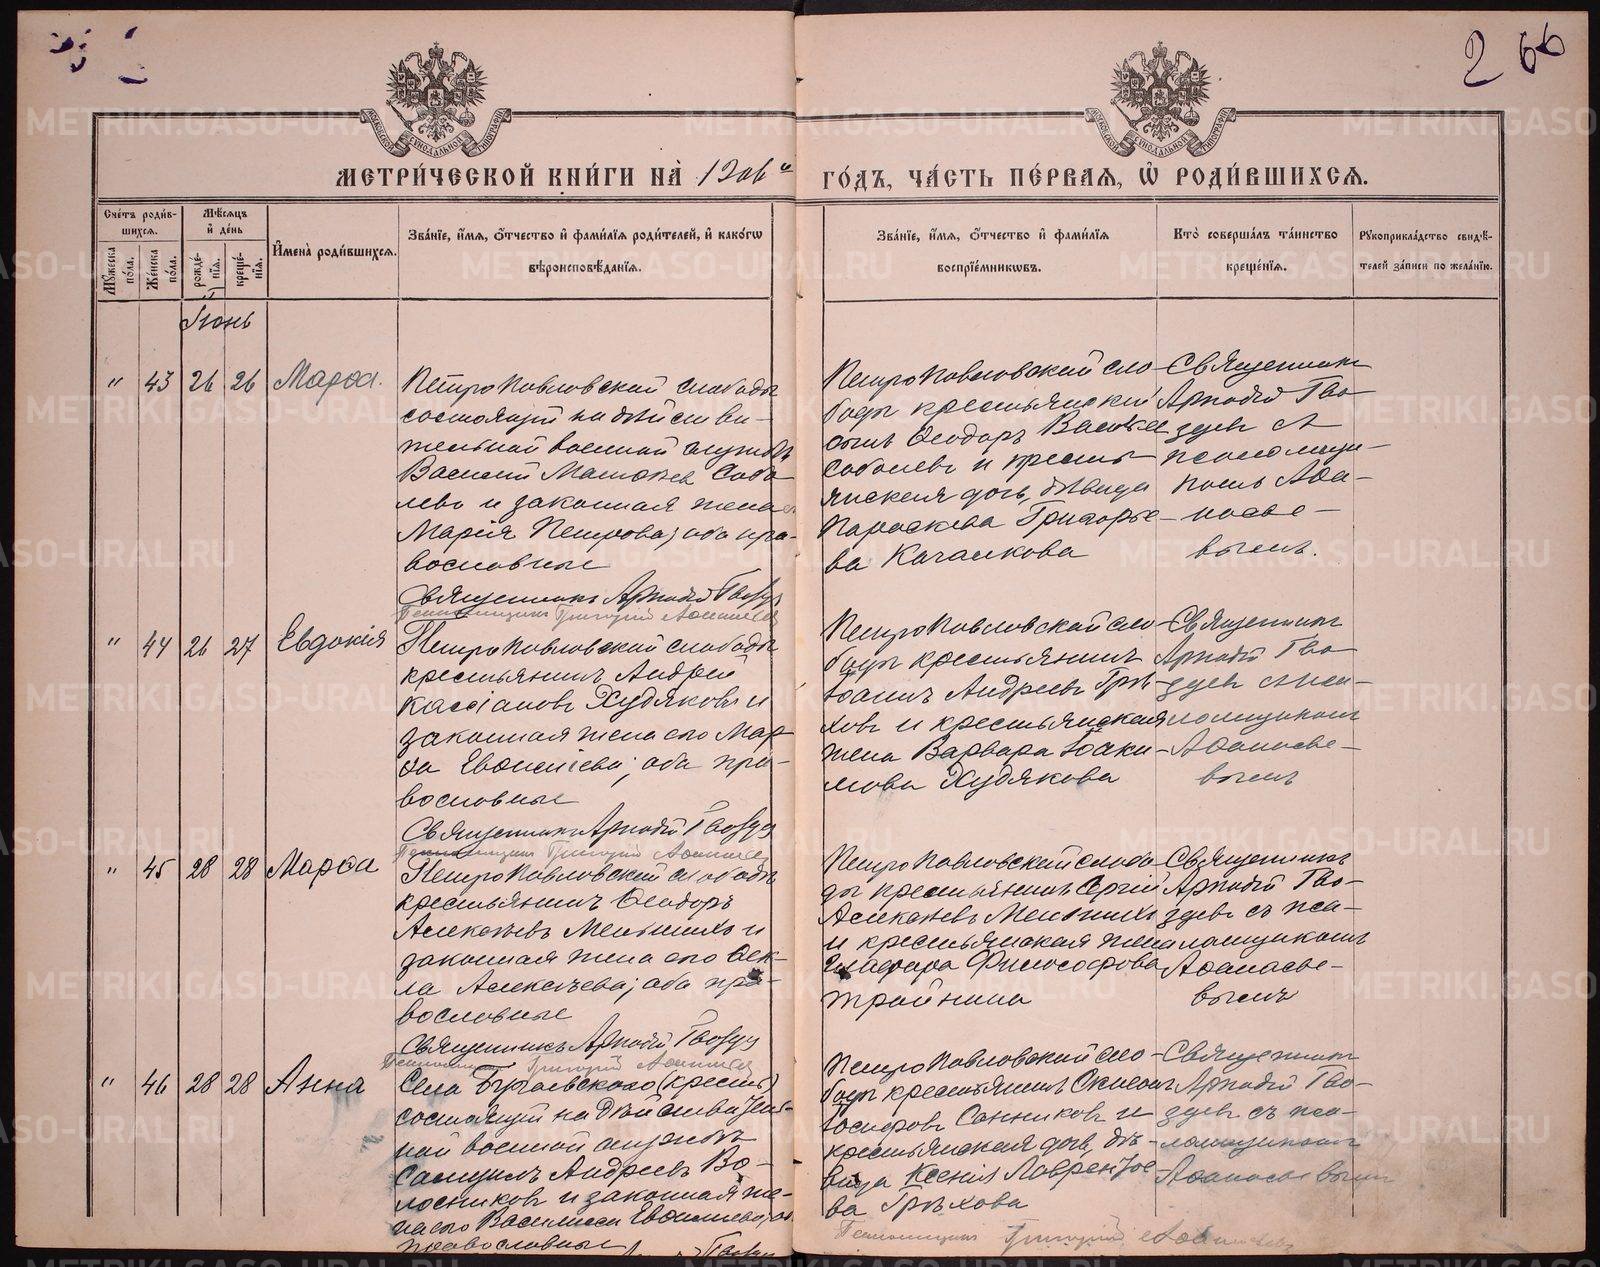 2 66
МЕТРИ́ЧЕСКОЙ КНИ́ГИ НА̀ 1906 ГО́ДЪ, ЧА́СТЬ ПЕ́РВАЯ, Ѽ РОДИ́ВШИХСЯ.
Сче́тъ роди́в-
шихся.
Мѣ́сяцъ
и҆ де́нь
Мꙋ́жеска по́ла.
Же́нска по́ла.
рожде́нїѧ.
креще́нїѧ.
И҆мена̀ роди́вшихсѧ.
Зва́нїе, и҆́мѧ, ѻ҆́тчество и҆ фами́лїѧ роди́телей, и҆ како́гѡ
вѣроисповѣ́данїѧ.
Зва́нїе, и҆́мѧ, ѻ҆́тчество и҆ фами́лїѧ
воспрїе́мникѡвъ.
Кто̀ соверша́лъ та́инство
креще́нїѧ.
Рꙋкоприкла́дство свидѣ́-
телей за́писи по жела́нїю.
Іюнь
" 43 26 26 Марѳа.
Петропавловской слободы
состоящій на дѣйстви-
тельной военной службѣ
Василій Собо-
левъ и законная жена
Марія Петрова; оба пра-
вославные
Священникъ Аркадій Гвоздевъ
Псаломщикъ Григорій Аѳанасьев
Петропавловской сло-
боды крестьянскій
сынъ Ѳеодоръ
Соболевъ и кресть-
янская дочь, дѣвица
Параскева Григорье-
ва Качалкова
Священникъ
Аркадій Гво-
здевъ с
псаломщи-
комъ Аѳа-
насье-
вымъ.
" 44 26 27 Евдокія
Петропавловской слободы
крестьянинъ Андрей
Кассіановъ Худяковъ и
законная жена его Мар-
ѳа ; оба пра-
вославные
Священникъ Аркадій Гвоздевъ
Псаломщикъ Григорій Аѳанасьев
Петропавловской сло-
боды крестьянинъ
Іоаннъ Андреевъ Грѣ-
ховъ и крестьянская
жена Варвара Іоаки-
мова Худякова
Священникъ
Аркадій Гво-
здевъ с пса-
ломщикомъ
Аѳанасье-
вымъ
" 45 28 28 Марѳа
Петропавловской слободы
крестьянинъ Ѳеодоръ
Алексѣевъ Меньшихъ и
законная жена его Ѳек-
ла Алексѣева; оба пра-
вославные
Священникъ Аркадій Гвоздевъ
Псаломщикъ Григорій Аѳанасьев
Петропавловской слобо-
ды крестьянинъ Сергій
Алексѣевъ Меньшихъ
и крестьянская жена
Глафира Философова
Тройнина
Священникъ
Аркадій Гво-
здевъ съ пса-
ломщикомъ
Аѳанасье-
вымъ
" 46 28 28 Анна
Села (крест)
состоящій на дѣйствитель-
ной военной службѣ
Самуилъ Андреевъ Во-
лосниковъ и законная же-
на его Василиса ; об
православные
Гвозд
Петропавловской сло-
боды крестьянинъ
Іосифовъ Санниковъ и
крестьянская дочь, дѣ-
вица Ксенія Лаврентье-
ва Грѣхова
Священникъ
Аркадій Гво-
здевъ съ пса-
ломщикомъ
Аѳанасьевымъ
Псаломщикъ Григорій Аѳанасьевъ
METRIKI.GASO-URAL.RU